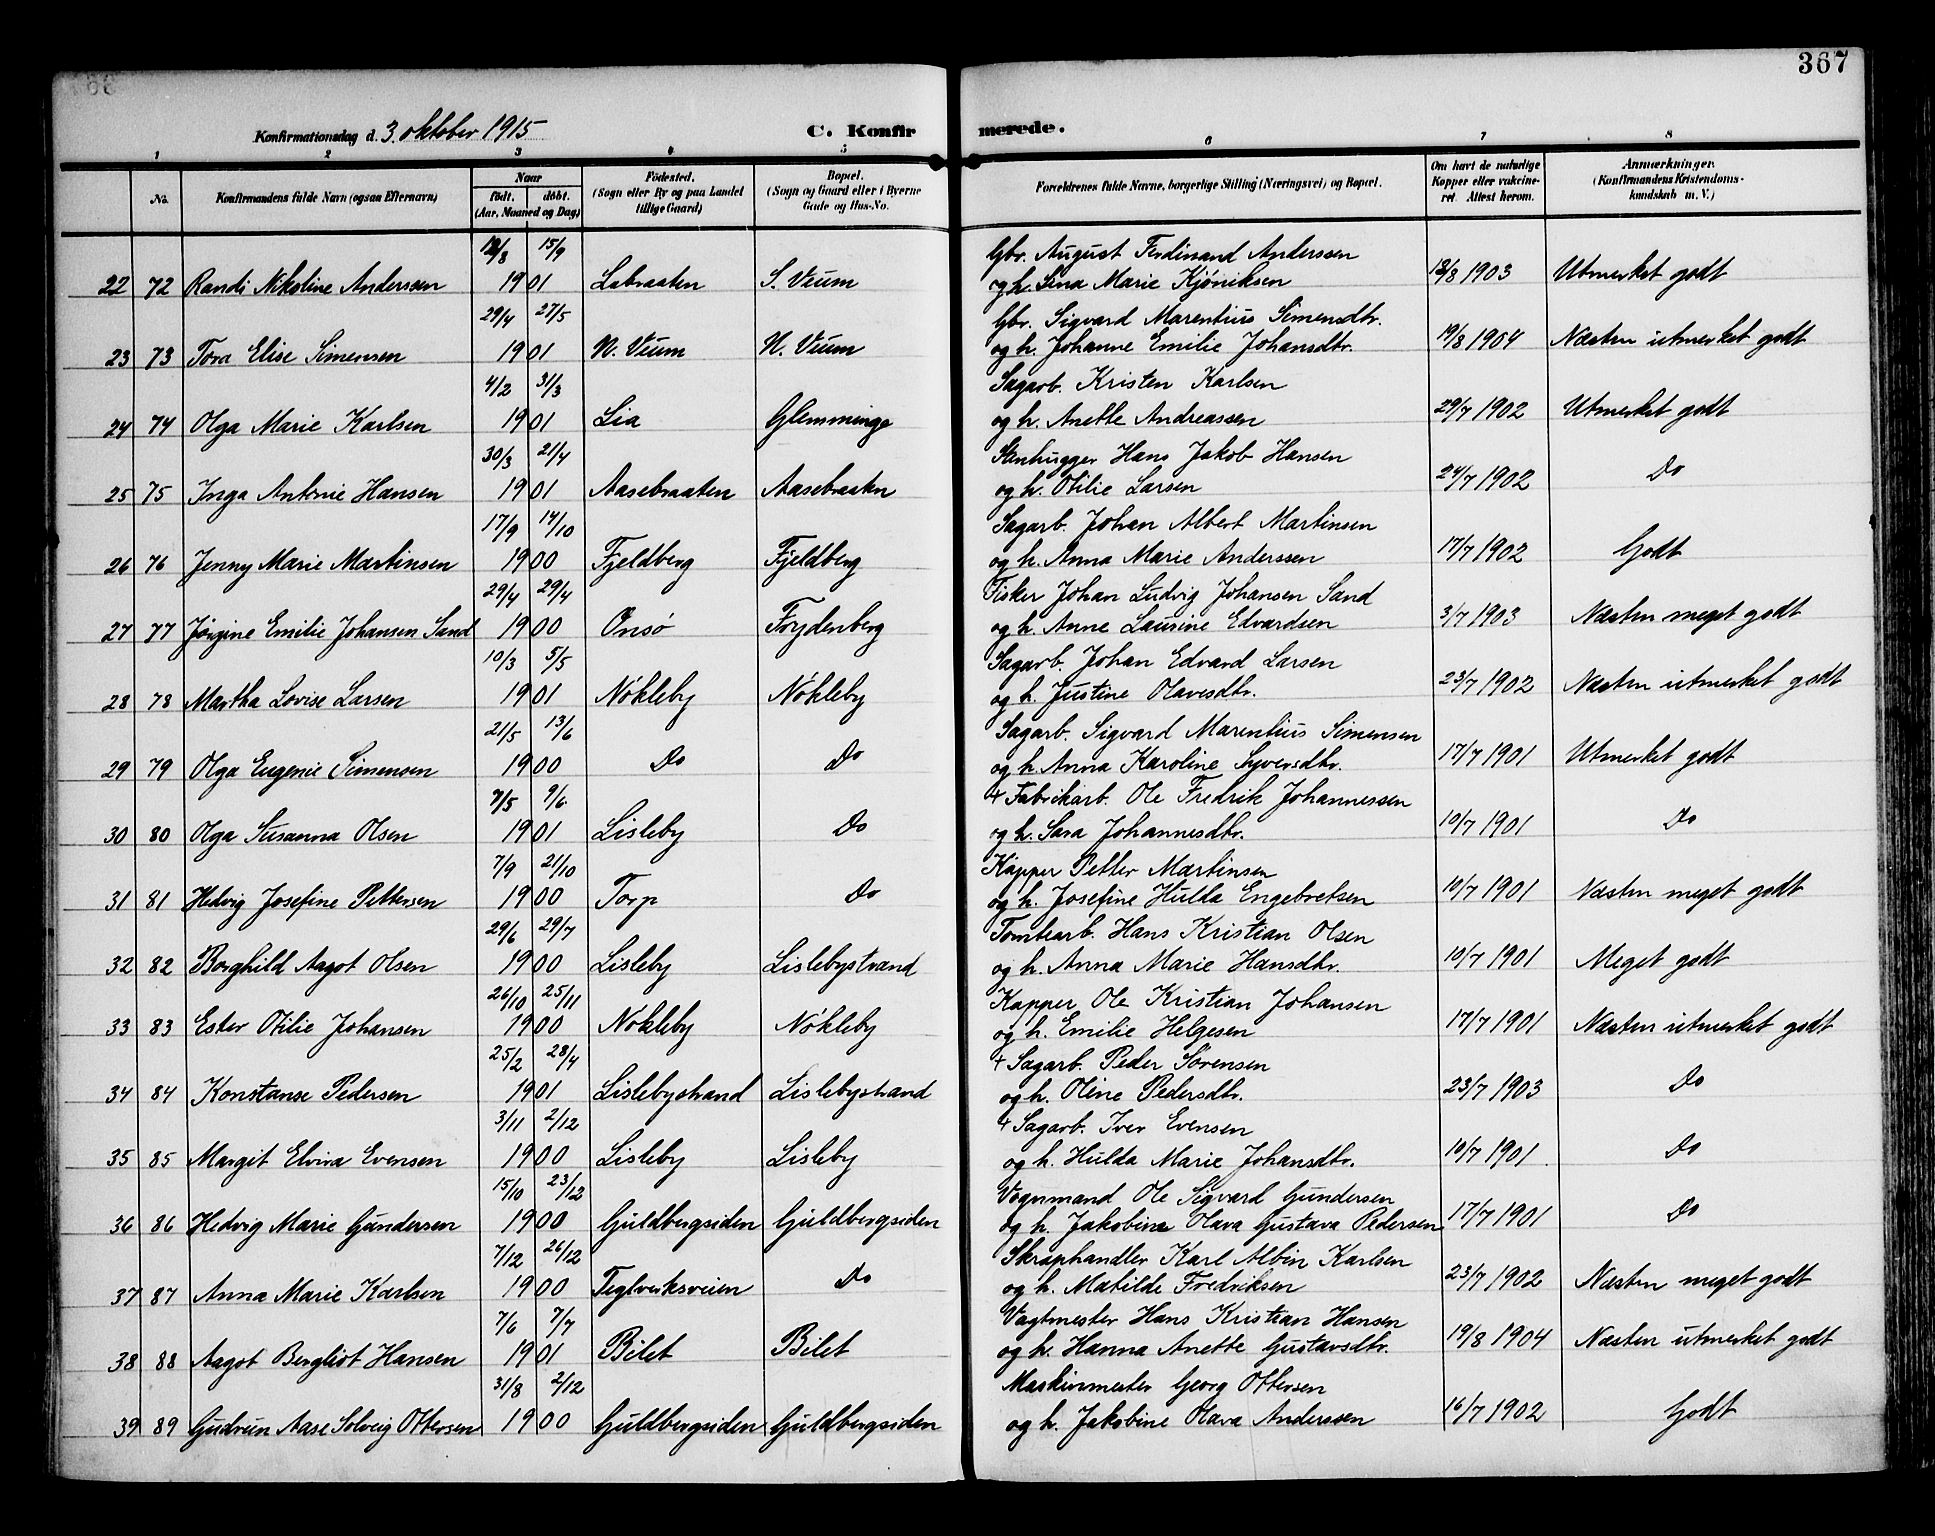 367
Konfirmationsdag d. 3. oktober 1915 C. Konfir merede.
1 2 3 4 5 6 7 8
No. Konfirmandens fulde Navn (ogsaa Efternavn) Naar født. døbt. (Aar, Maaned og Dag) Fødested. (Sogn eller By og paa Landet tillige Gaard) Bopæl. (Sogn og Gaard eller i Byerne Gade og Hus-No. Forældrenes fulde Navne, borgerlige Stilling (Næringsvei) og Bopæl. Om havt de naturlige Kopper eller vakcineret. Attest herom. Anmærkninger. (Konfirmandens Kristendomskundskab m. V.)
15/9 Gbr. August Ferdinand Anderssen
22 72 Randi Nikoline Anderssen 1901 Labraaten S. Veum og h. Lina Marie Kjøniksen 18/8 1903 Utmerket godt
29/4 27/5 Gbr. Sigvard Marentius Simensdtr.
23 73 Tora Elise Simensen 1901 N. Veum N. Veum og h. Johanne Emilie Johansdtr. 19/8 1904 Næsten utmerket godt
4/2 31/3 Sagarb. Kristen Karlsen
24 74 Olga Marie Karlsen 1901 Lia Glemminge og h. Anette Andreassen 29/7 1902 Utmerket godt
30/3 21/4 Stenhugger Hans Jakob Hansen
25 75 Inga Antonie Hansen 1901 Aasebraaten Aasebraaten og h. Otilie Larsen 24/7 1902 Do
17/9 14/10 Sagarb. Johan Albert Martinsen
26 76 Jenny Marie Martinsen 1900 Fjeldberg Fjeldberg og h. Anna Marie Anderssen 17/7 1902 Godt
29/4 29/4 Fisker Johan Ludvig Johansen Sand
27 77 Jørgine Emilie Johansen Sand 1900 Onsø Frydenberg og h. Anne Laurine Edvardsen 3/7 1903 Næsten meget godt
10/3 5/5 Sagarb. Johan Edvard Larsen
28 78 Martha Lovise Larsen 1901 Nøkleby Nøkleby og h. Justine Olavesdtr. 23/7 1902 Næsten utmerket godt
21/5 13/6 Sagarb. Sigvard Marentius Simensen
29 79 Olga Eugenie Simensen 1900 Do Do og h. Anna Karoline Syversdtr. 17/7 1901 Utmerket godt
7/5 9/6 + Fabrikarb. Ole Fredrik Johannessen
30 80 Olga Susanna Olsen 1901 Lisleby Do og h. Sara Johannesdtr. 10/7 1901 Do
7/9 21/10 Kapper Petter Martinsen
31 81 Hedvig Josefine Pettersen 1900 Torp Do og h. Josefine Hulda Engebretsen 10/7 1901 Næsten meget godt
29/6 29/7 Tomtearb. Hans Kristian Olsen
32 82 Borghild Aagot Olsen 1900 Lisleby Lislebystrand og h. Anna Marie Hansdtr. 10/7 1901 Meget godt
26/10 25/11 Kapper Ole Kristian Johansen
33 83 Ester Otilie Johansen 1900 Nøkleby Nøkleby og h. Emilie Helgesen 17/7 1901 Næsten utmerket godt
25/2 28/4 + Sagarb. Peder Sørensen
34 84 Konstanse Pedersen 1901 Lislebystrand Lislebystrand og h. Oline Pedersdtr. 23/7 1903 Do
3/11 2/12 + Sagarb. Iver Evensen
35 85 Margit Elvira Evensen 1900 Lisleby Lisleby og h. Hulda Marie Johansdtr. 10/7 1901. Do
15/10 23/12 Vognmand Ole Sigvard Gundersen
36 86 Hedvig Marie Gundersen 1900 Guldbergsiden Guldbergsiden og h. Jakobine Olava Gustava Pedersen 17/7 1901 Do
7/12 26/12 Skraphandler Karl Albin Karlsen
37 87 Anna Marie Karlsen 1900 Teglverksveien Do og h. Matilde Fredriksen 23/7 1902 Næsten meget godt
7/6 7/7 Vagtmester Hans Kristian Hansen
38 88 Aagot Bergliot Hansen 1901 Bilet Bilet og h. Hanna Anette Gustavsdtr. 19/8 1904 Næsten utmerket godt
31/8 2/12 Maskinmester Georg Ottersen
39 89 Gudrun Aase Solveig Ottersen 1900 Guldbergsiden Guldbergsiden og h. Jakobine Olava Anderssen 16/7 1902 Godt